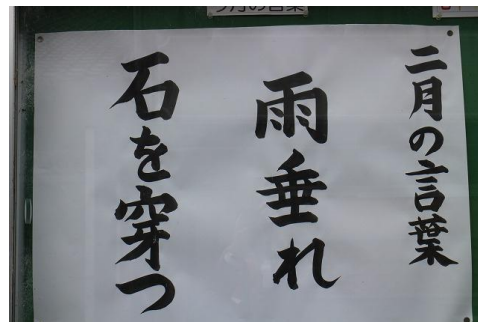 二月の言葉
雨垂れ
石を穿つ